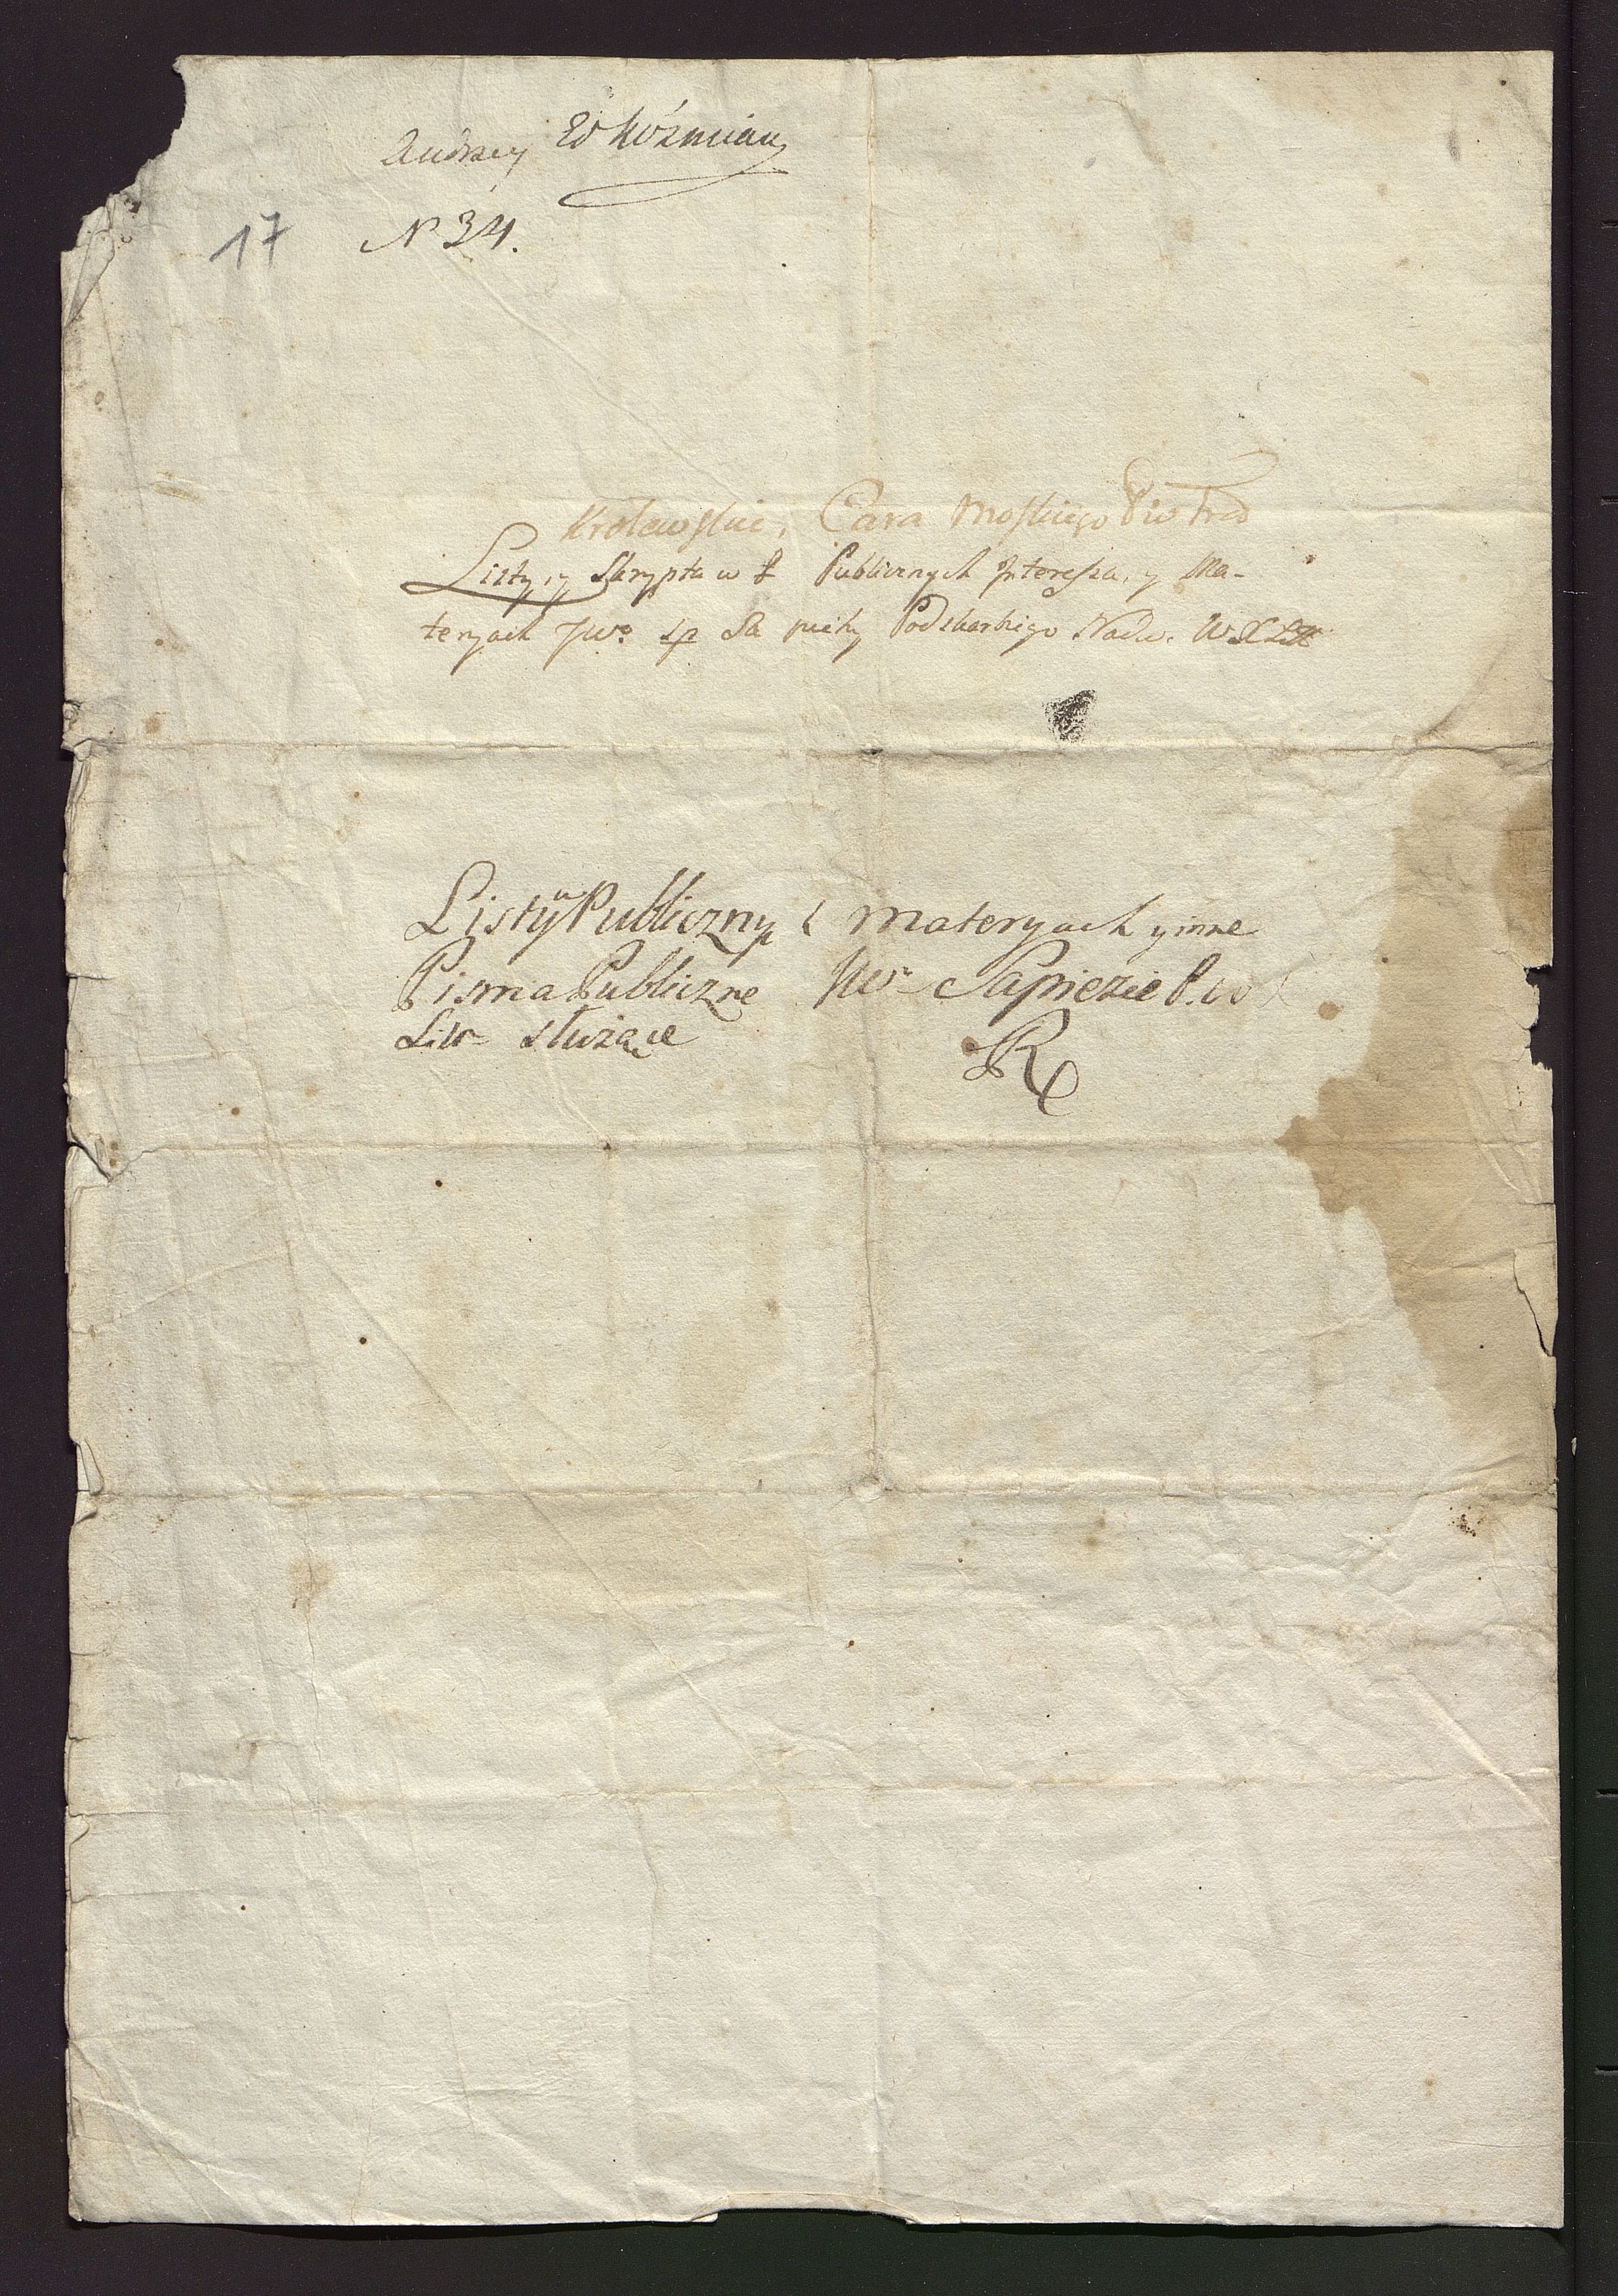 Andrzey Ed Koźmian
17 N 34.
Krolewskie, Cara Moskiego Piotra
Listy, y Skrypta w Publicznych Interessa, y Ma-
teryach JWo Sapiehy Podskarbiego Nadw. WXLit
Listy w Publicznych Materyach y inne
Pisma Publiczne JWo Sapiezie P. W X
Litt służące
R